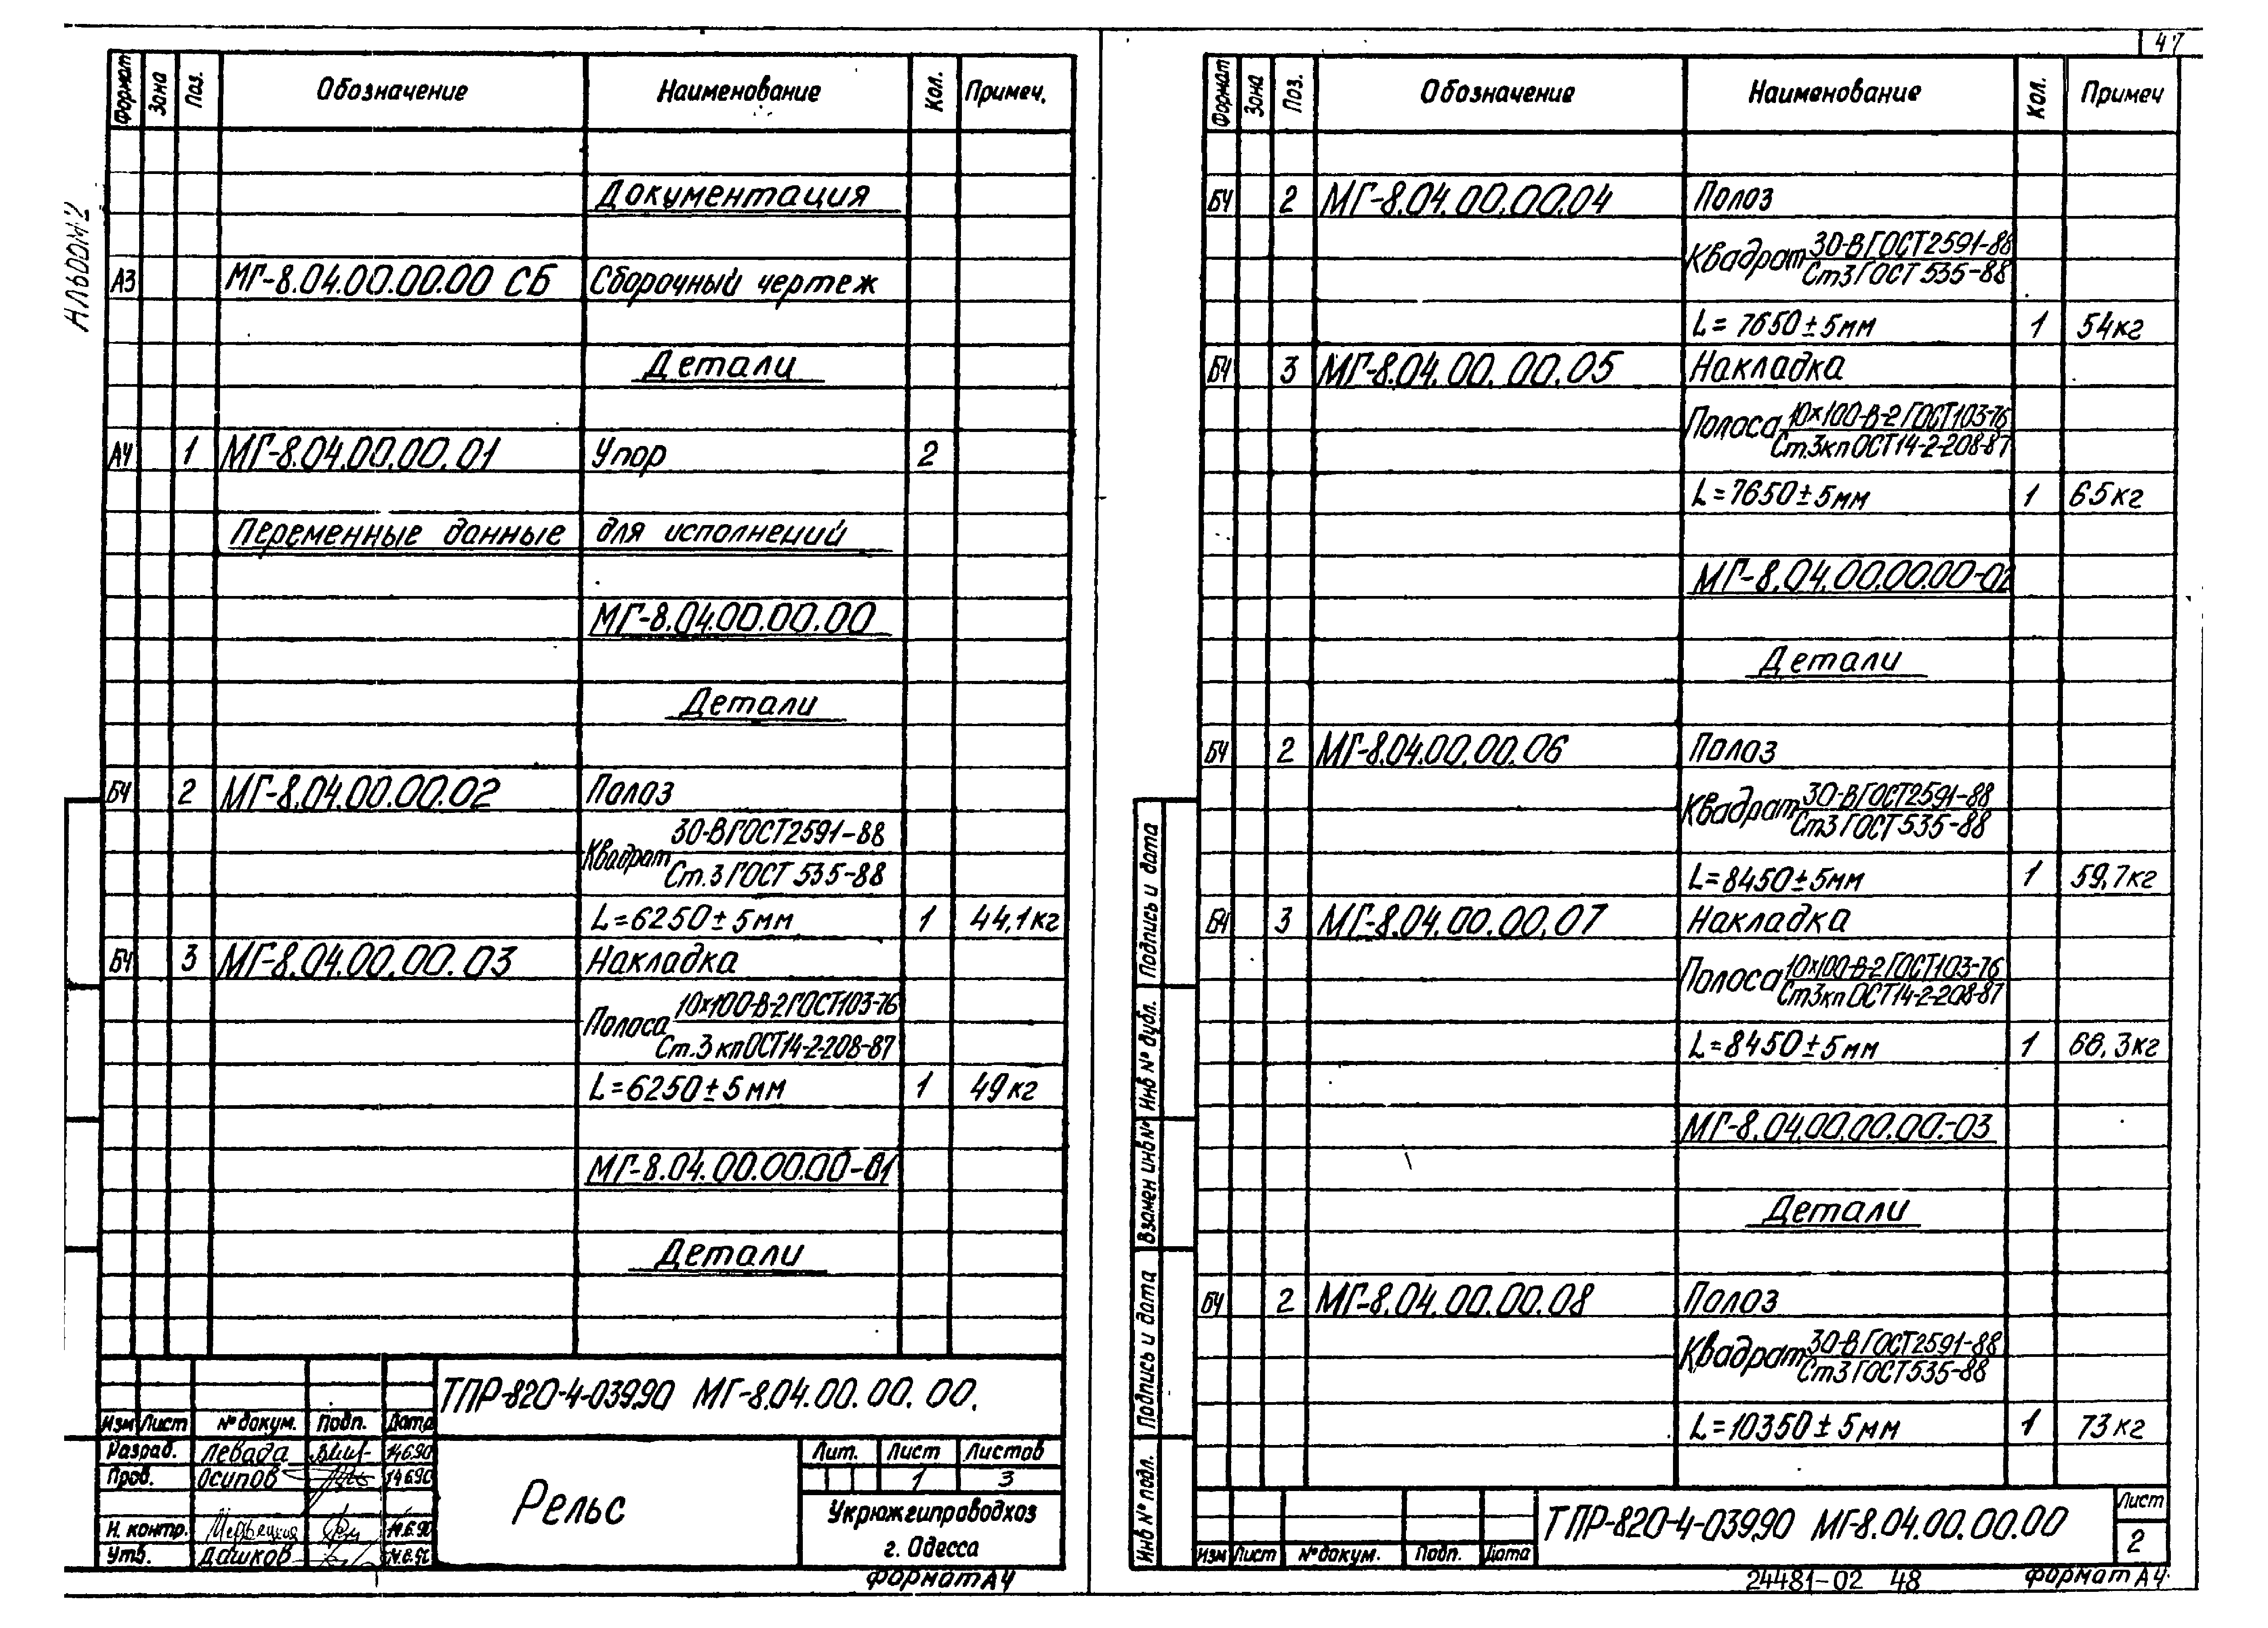 Альбом 2
Формат Зона Поз. Обозначение Наименование Кол. Примеч.
Документация
А3 МГ-8.04.00.00.00 СБ Сборочный чертеж
Детали
А4 1 МГ-8.04.00.00.01 Упор 2
Переменные данные для исполнений
МГ-8.04.00.00.00
Детали
БЧ 2 МГ-8.04.00.00.02 Полоз
Квадрат 30-В ГОСТ 2591-88
Ст.3 ГОСТ 535-88
L=6250±5мм 1 44,1кг
БЧ 3 МГ-8.04.00.00.03 Накладка
Полоса 10х100-В-2 ГОСТ103-76
Ст.3 кп ОСТ14-2-208-87
L=6250±5мм 1 49кг
МГ-8.04.00.00.00-01
Детали
ТПР-820-4-039.90 МГ-8.04.00.00.00.
Изм Лист № докум. Подп. Дата
Разраб. Левада 14.6.90
Пров. Осипов 14.6.90
Н. контр. 14.6.90
Утв. Дашков
Рельс
Лит. Лист Листов
1 3
Укрюжгипроводхоз
г. Одесса
Формат А4
47
Формат Зона Поз. Обозначение Наименование Кол. Примеч
БЧ 2 МГ-8.04.00.00.04 Полоз
Квадрат 30-В ГОСТ 2591-88
Ст3 ГОСТ 535-88
L=7650±5мм 1 54кг
БЧ 3 МГ-8.04.00.00.05 Накладка
Полоса 10х100-В-2 ГОСТ103-76
Ст.3кп ОСТ14-2-208-87
L=7650±5мм 1 65кг
МГ-8.04.00.00.00-02
Детали
БЧ 2 МГ-8.04.00.00.06 Полоз
Квадрат 30-В ГОСТ2591-88
Ст3 ГОСТ 535-88
L=8450±5мм 1 59,7кг
БЧ 3 МГ-8.04.00.00.07 Накладка
Полоса 10х100-В-2 ГОСТ103-76
Ст3кп ОСТ14-2-208-87
L=8450±5мм 1 68,3кг
МГ-8.04.00.00.00-03
Детали
БЧ 2 МГ-8.04.00.00.08 Полоз
Квадрат 30-В ГОСТ2591-88
Ст3 ГОСТ535-88
L=10350±5мм 1 73кг
Подпись и дата
Инв № дубл.
Взамен инв №
Подпись и дата
Инв № подл.
Изм Лист № докум. Подп. Дата
ТПР-820-4-039.90 МГ-8.04.00.00.00
Лист
2
24481-02 48
Формат А4